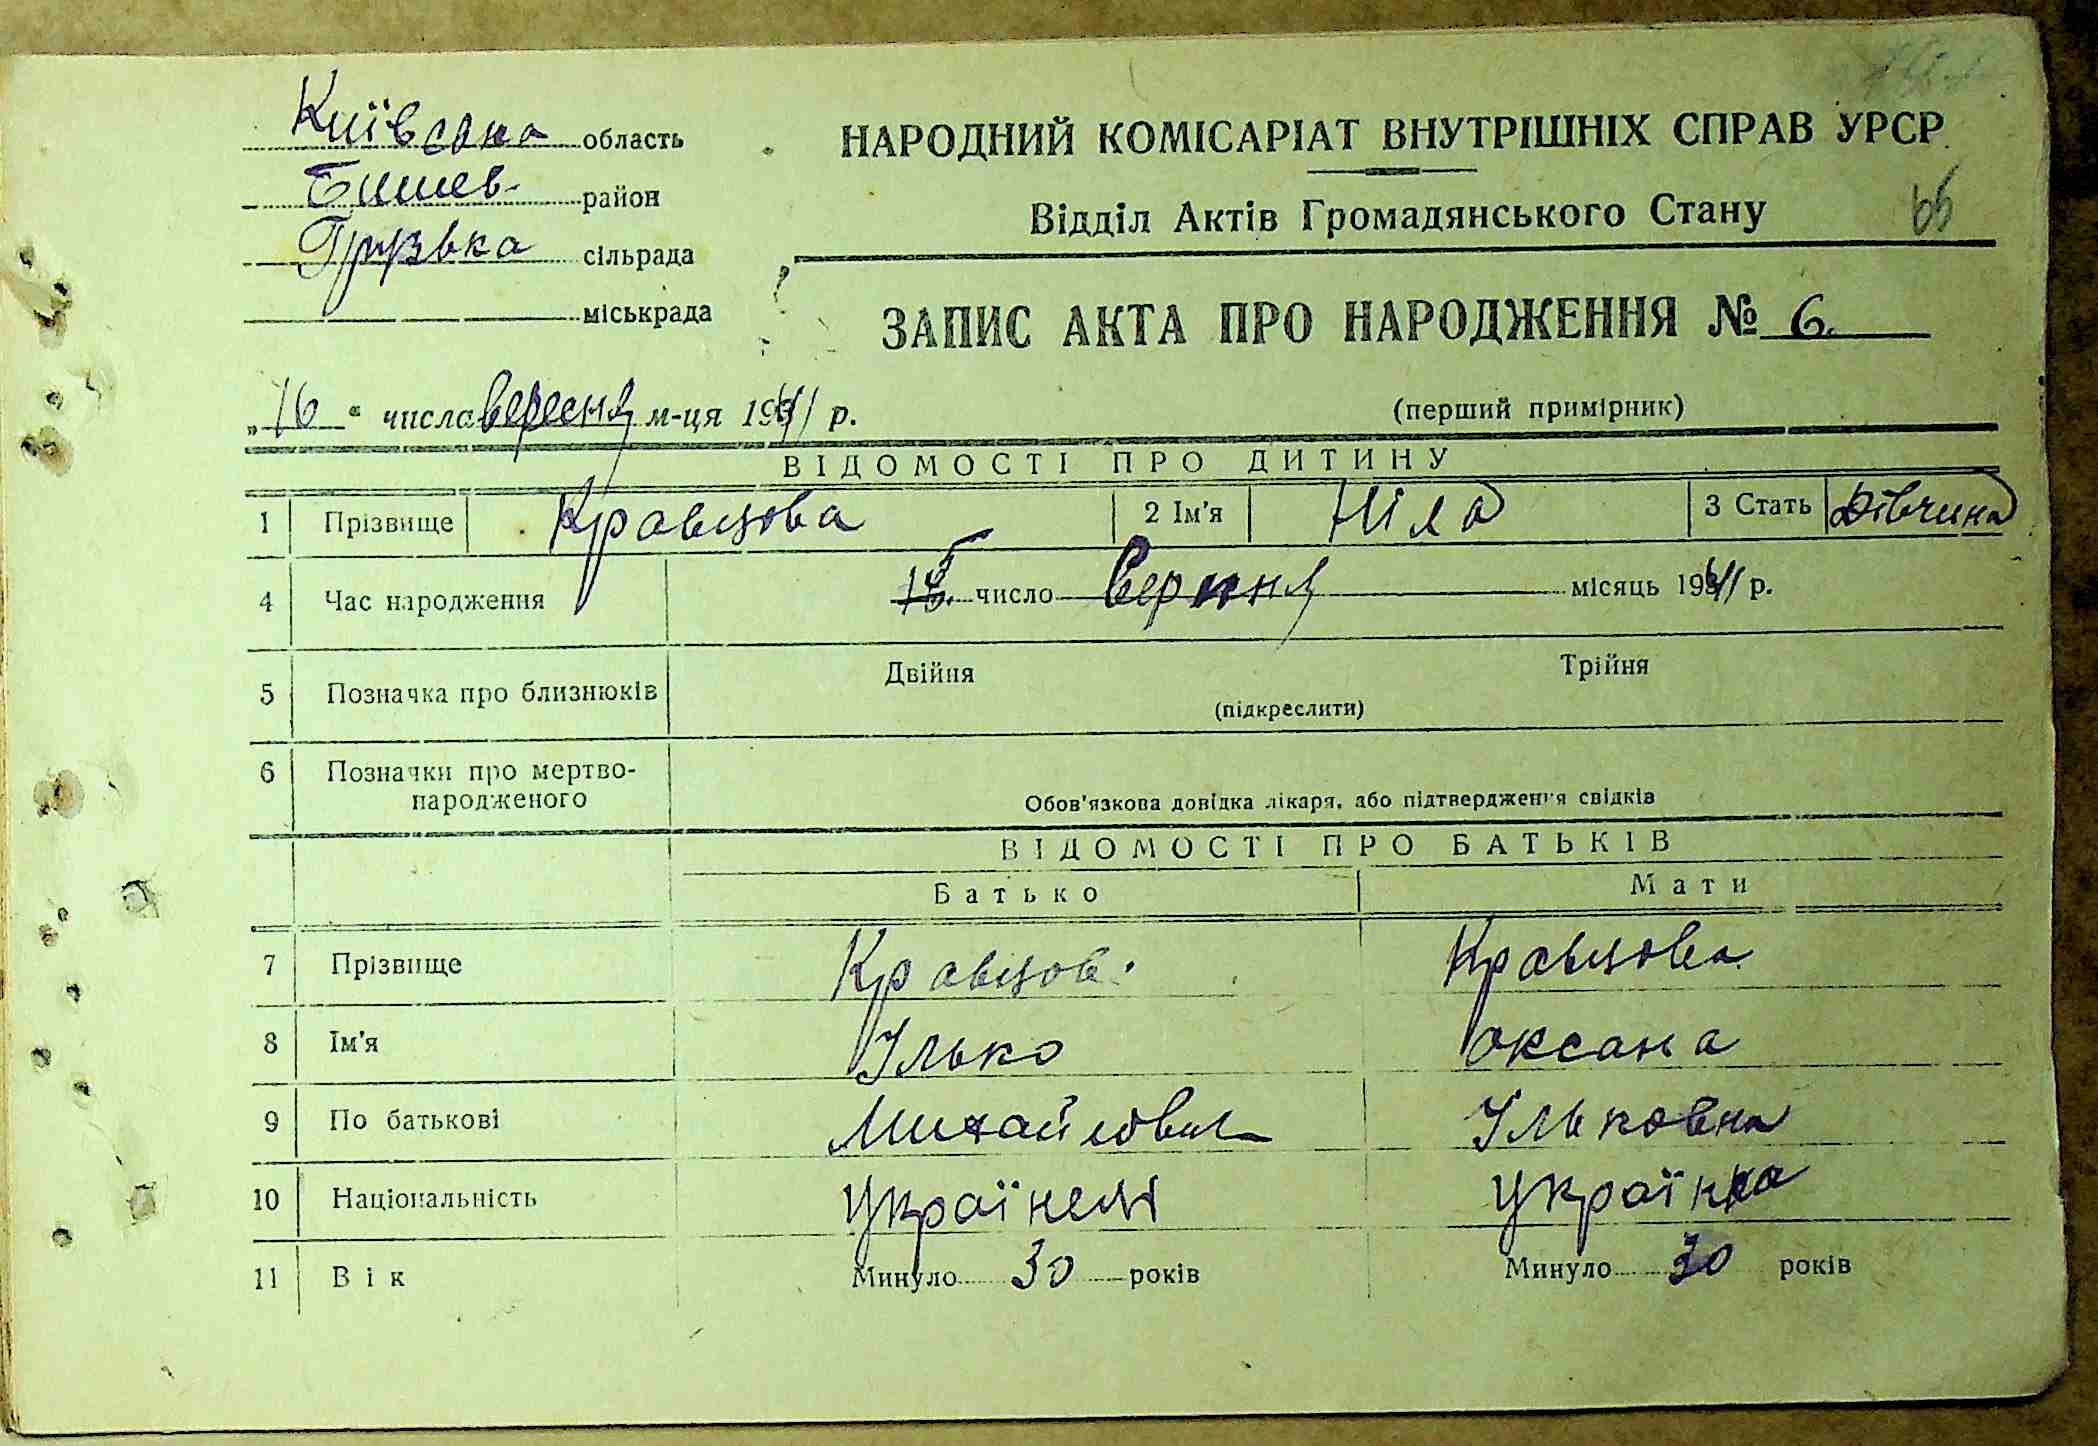 Київська область
НАРОДНИЙ КОМІСАРІАТ ВНУТРІШНІХ СПРАВ УРСР
Бишев- район
Відділ Актів Громадянського Стану 66
Грузька сільрада
міськрада
ЗАПИС АКТА ПРО НАРОДЖЕННЯ № 6.
„16“ числа вересня м-ця 1941 р.
(перший примірник)
ВІДОМОСТІ ПРО ДИТИНУ
1 Прізвище Кравцова 2 Ім'я Ніла 3 Стать дівчина
4 Час народження число місяць 1941 р.
5 Позначка про близнюків Двійня Трійня
(підкреслити)
6 Позначки про мертво-
народженого
Обов'язкова довідка лікаря, або підтвердження свідків
ВІДОМОСТІ ПРО БАТЬКІВ
Батько Мати
7 Прізвище Кравцов. Кравцова
8 Ім'я Ілько Оксана
9 По батькові Михайлович Ільковна
10 Національність Українець Українка
11 Вік Минуло 30 років Минуло 30 років